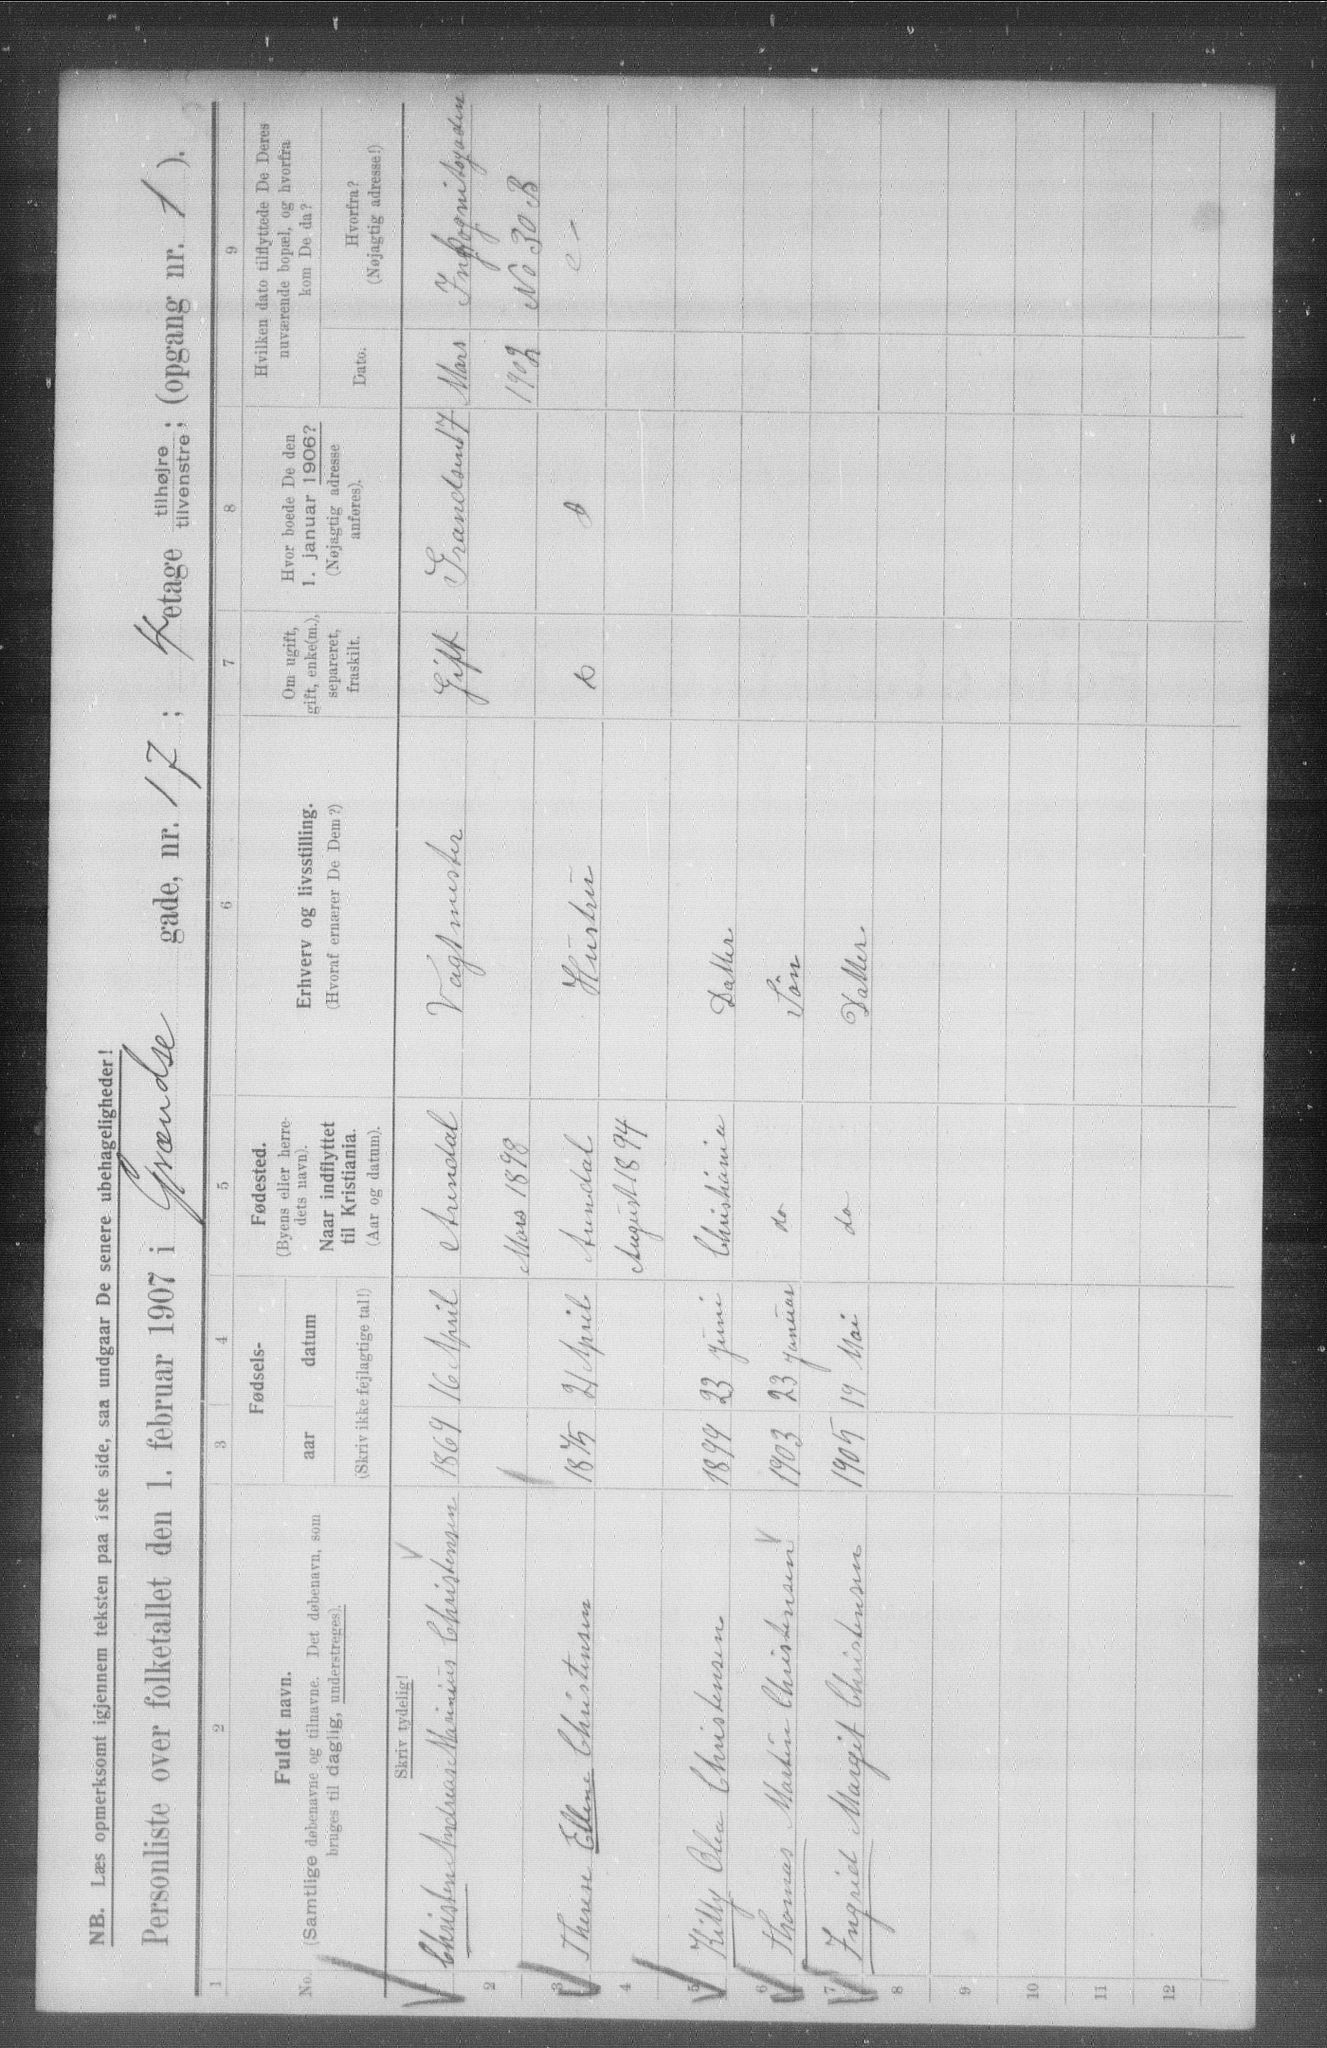 NB. Læs opmerksomt igjennem teksten paa 1ste side, saa undgaar De senere ubehageligheder!
Personliste over folketallet den 1. februar 1907 i Grændse gade, nr. 17; 4 etage tilhøjre; tilvenstre; (opgang nr. 1).
1 2 3 4 5 6 7 8 9
No.
Fuldt navn.
(Samtlige døbenavne og tilnavne. Det døbenavn, som
bruges til daglig, understreges).
Fødsels-
aar datum
(Skriv ikke fejlagtige tal!)
Fødested.
(Byens eller herre-
dets navn).
Naar indflyttet
til Kristiania.
(Aar og datum).
Erhverv og livsstilling.
(Hvoraf ernærer De Dem?)
Om ugift,
gift, enke(m.),
separeret,
fraskilt.
Hvor boede De den
1. januar 1906?
(Nøjagtig adresse
anføres).
Hvilken dato tilflyttede De Deres
nuværende bopæl, og hvorfra
kom De da?
Dato.
Hvorfra?
(Nøjagtig adresse!)
Skriv tydelig!
1 Christen Andreas Marinius Christensen 1869 16 April Arendal Vagtmester Gift Grændsen 17 Mars
2 Mars 1898 1902 No 30 B
3 Therese Ellene Christensen 1875 21 April Arendal Hustru
4 August 1894
5 Killy Olea Christensen 1899 23 Juni Christiania Datter
6 Thomas Martin Christensen 1903 23 Januar do Søn
7 Ingrid Margit Christensen 1905 19 Mai do Datter
8
9
10
11
12